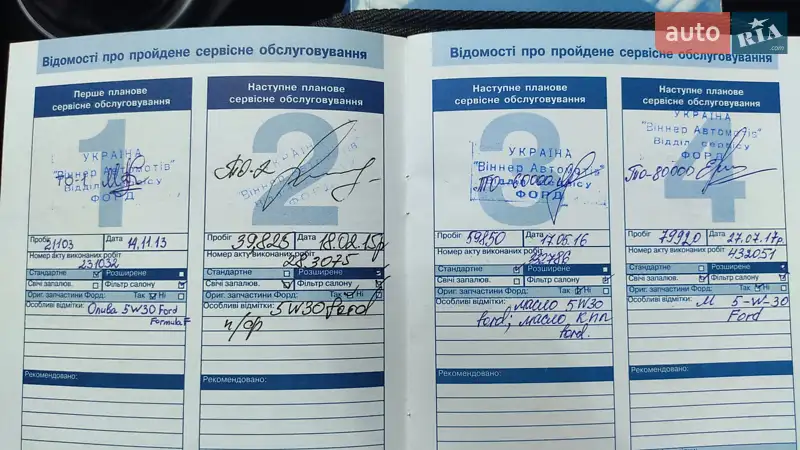 auto
RIA
.com
Відомості про пройдене сервісне обслуговування
Перше планове
сервісне обслуговування
1
УКРАЇНА
"Віннер Автомотів"
ТО-1
Відділ сервісу
ФОРД
Пробіг 21103 Дата 14.11.13
Номер акту виконаних робіт
231032
Стандартне Розширене
Свічі запалюв. Фільтр салону
Ориг. запчастини Форд: Так Ні
Особливі відмітки: Олива 5W30 Ford
Formula F
Рекомендовано:
Наступне планове
сервісне обслуговування
2
ТО-2
Пробіг 39825 Дата 18.02.15р
Номер акту виконаних робіт
283075
Стандартне Розширене
Свічі запалюв. Фільтр салону
Ориг. запчастини Форд: Так Ні
Особливі відмітки: 5W30 Ford
п/ф
Рекомендовано:
Відомості про пройдене сервісне обслуговування
Наступне планове
сервісне обслуговування
3
УКРАЇНА
"Віннер Автомотів"
ТО 60000
ФОРД
Пробіг 59850 Дата 17.05.16
Номер акту виконаних робіт
Стандартне Розширене
Свічі запалюв. Фільтр салону
Ориг. запчастини Форд: Так Ні
Особливі відмітки: масло 5W30
ford; масло КПП
ford.
Рекомендовано:
Наступне планове
сервісне обслуговування
4
УКРАЇНА
"Віннер Автомотів"
Відділ сервісу
ФОРД
ТО-80000
Пробіг 79920 Дата 27.07.17р.
Номер акту виконаних робіт 432051
Стандартне Розширене
Свічі запалюв. Фільтр салону
Ориг. запчастини Форд: Так Ні
Особливі відмітки: М 5-W-30
Ford
Рекомендовано: